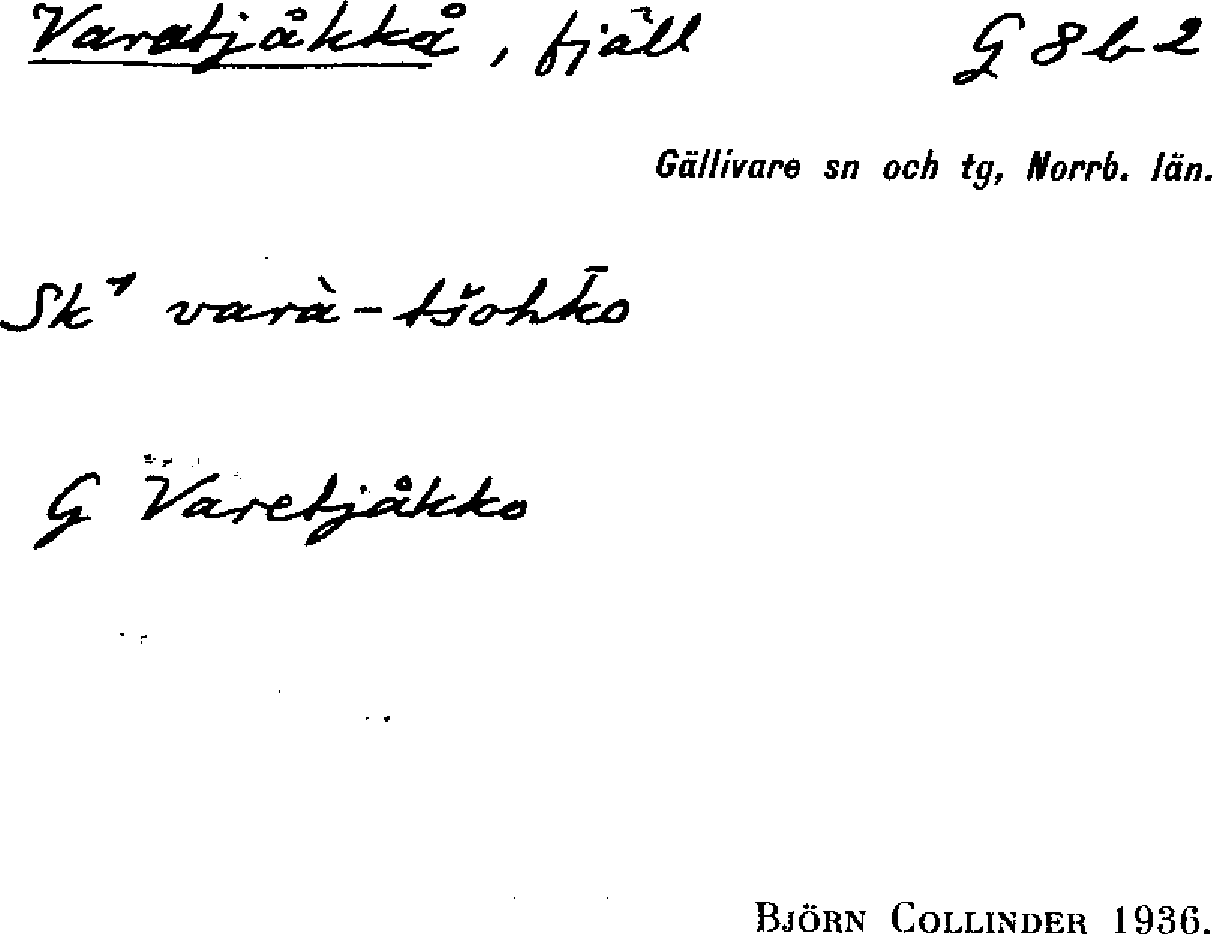 Varatjåkkå, fjäll G 8 b 2
Gällivare sn och tg, Norrb. län.
Sk⁷ varà-tšoh̄ko
G Varetjåkko
BJÖRN COLLINDER 1936.